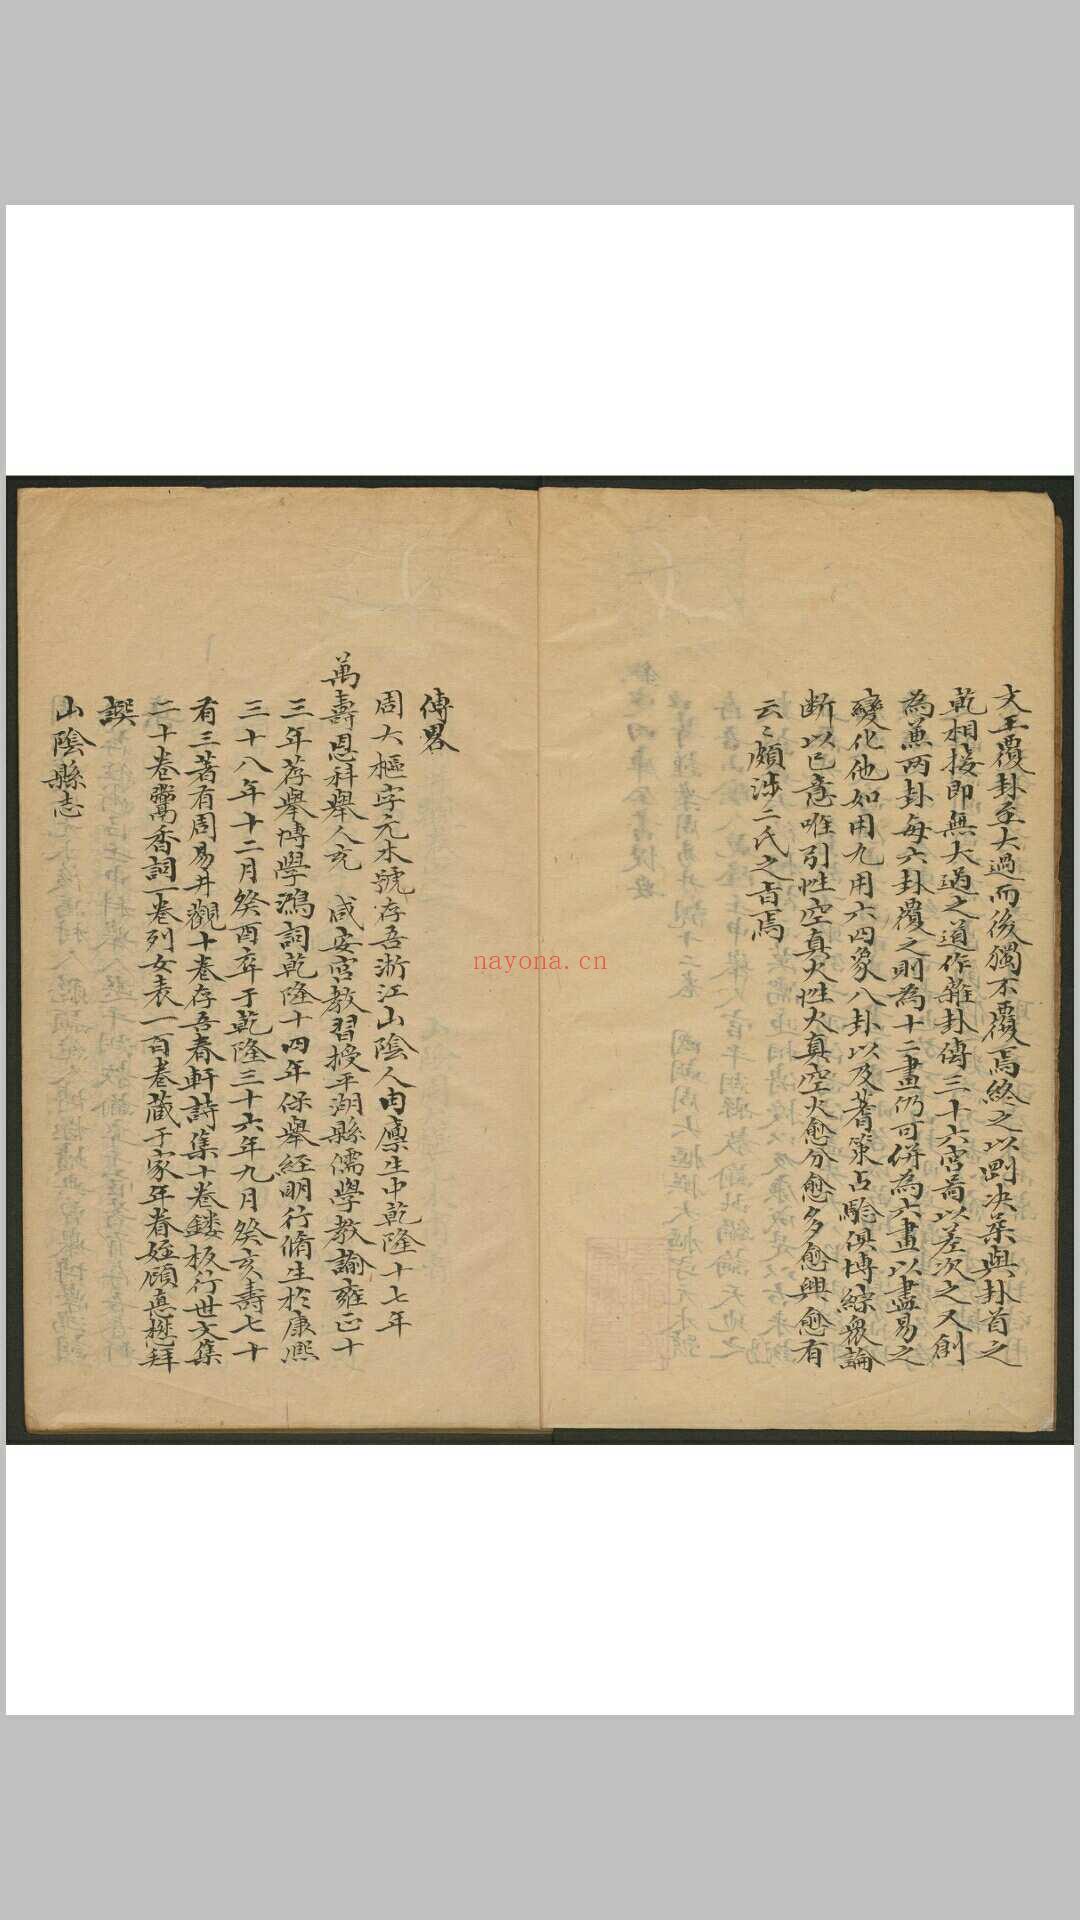 文王覆卦至大過而後獨不覆焉終之以剛决柔與卦首之
乾相接即無大過之道作雜卦傳三十六宮啚以差次之又創
為蕙兩卦每六卦覆之則為十二畫仍可併為六畫以盡易之
變化他如用九用六四象八卦以及蓍策占騐俱博綜衆論
斷以己意唯引性空真火性火真空火愈分愈多愈興愈有
云〻頗涉二氏之旨焉
傳畧
周大樞字元木號存吾浙江山陰人由廪生中乾隆十七年
萬壽恩科舉人充 咸安宫教習授平湖縣儒學教諭雍正十
三年荐舉博學鴻詞乾隆十四年保舉經明行脩生於康熙
三十八年十二月癸酉卒于乾隆三十六年九月癸亥壽七十
有三著有周易井觀十卷存吾春軒詩集十卷鏤板行世文集
二十卷鸎香詞一卷列女表一百卷藏于家年眷姪顧懿㦤拜
譔
山陰縣志
nayona.cn